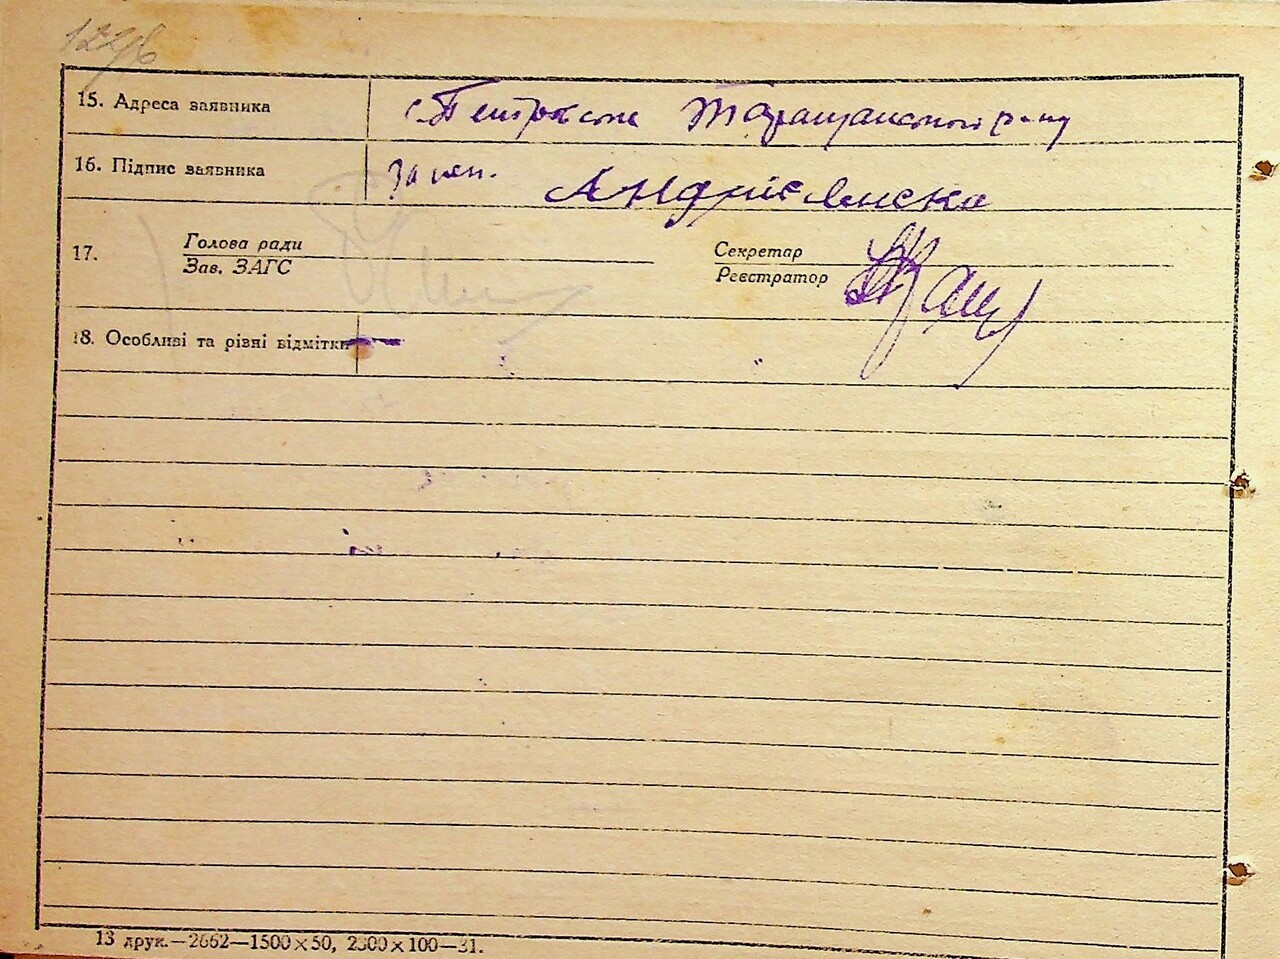 122б
15. Адреса заявника с. Петровське Таращанського р-ну
16. Підпис заявника За неп. Андрієвська
17. Голова ради Секретар
Зав. ЗАГС Реєстратор
18. Особливі та різні відмітки —
13 друк.—2662—1500×50, 2500×100—31.